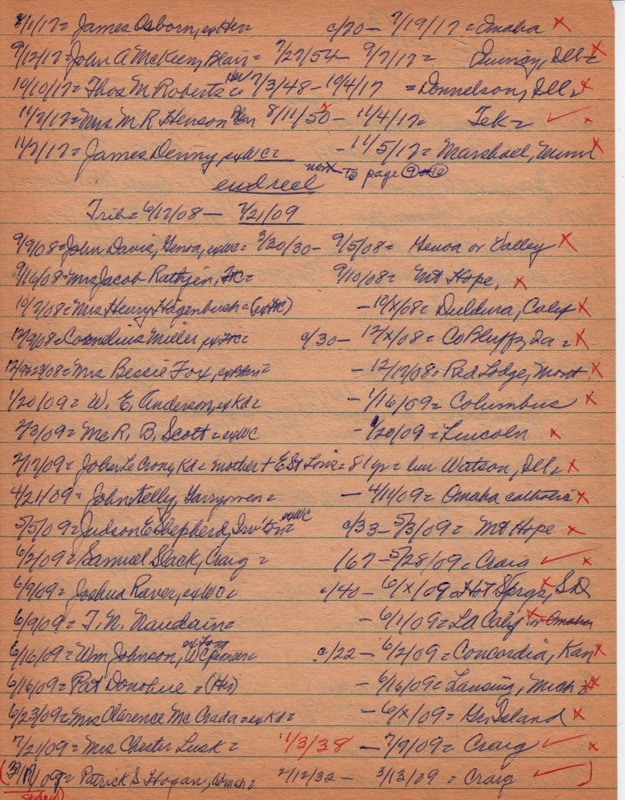 8/1/17 = James Osborn, ex Her = c/20 – 7/19/17 = Omaha x
9/12/17 = John A McKeen, Blair = 7/27/54 – 9/7/17 = Quincy, Ill = x
10/10/17 = Thos M Roberts 7/3/48 – 10/4/17 = Donnelson, Ill x
11/7/17 = Mrs M R Henson Her 8/11/50 – 11/4/17 Tek = ✓ x
11/7/17 = James Denny, ex WC = – 11/5/17 = Marshael, Minn x
end reel
next to page 9
Trib = 6/12/08 – 7/21/09
9/9/08 = John Davis, Genoa, ex WC = 3/20/30 – 9/5/08 = Genoa or Valley x
9/16/08 = Mrs Jacob Rathjen, FC = 9/10/08 = Mt Hope, x
10/7/08 = Mrs Henry Hagenbush = (ex FC) – 10/x/08 = Duldura, Calif x
12/9/08 = Cornelius Miller, ex FC = c/30 – 12/x/08 = Co Bluffs, Ia = x
Mrs Bessie Fox, ex Blair = – 12/17/08 = Red Lodge, Mont x
1/20/09 = W. E. Anderson, ex Kd = – 1/16/09 = Columbus x
2/3/09 = Mc R. B. Scott = ex WC – 1/20/09 = Lincoln x
2/17/09 = Kd = mother + E St Louis = 81 yr = bur Watson, Ill = x
4/21/09 = John Kelly, Garrymen = – 4/11/09 = Omaha catholic x
5/5/09 = Judson E Shepherd, ex WC c/33 – 5/3/09 = Mt Hope x
6/2/09 = Samuel Slack, Craig = 167 – 5/28/09 = Craig ✓ x
6/9/09 = Joshua Raver, ex WC = c/40 – 6/x/09 = Hot Sprgs, SD x
6/9/09 = T. N. Naudain = – 6/1/09 = La Calif or Omaha x
6/16/09 = Wm Johnson, c/22 – 6/2/09 = Concordia, Kan x
6/16/09 = Pat Donohue = (Her) – 6/16/09 = Lansing, Mich x
6/23/09 = Mrs Clarence Mc Crada = ex Kd = – 6/x/09 = Gr Island x
7/21/09 = Mrs Chester Lusk = 1/3/38 – 7/9/09 = Craig ✓ x
Patrick S Hogan, Omah = 2/12/32 – 3/13/09 = Craig ✓ )